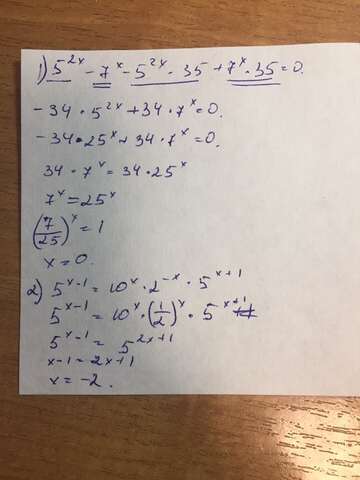 1) 5^{2x} - 7^x - 5^{2x} · 35 + 7^x · 35 = 0.
- 34 · 5^{2x} + 34 · 7^x = 0.
- 34 · 25^x + 34 · 7^x = 0.
34 · 7^x = 34 · 25^x
7^x = 25^x
(7/25)^x = 1
x = 0.
2) 5^{x-1} = 10^x · 2^{-x} · 5^{x+1}
5^{x-1} = 10^x · (1/2)^x · 5^{x+1}
5^{x-1} = 5^{2x+1}
x-1 = 2x+1
x = -2.